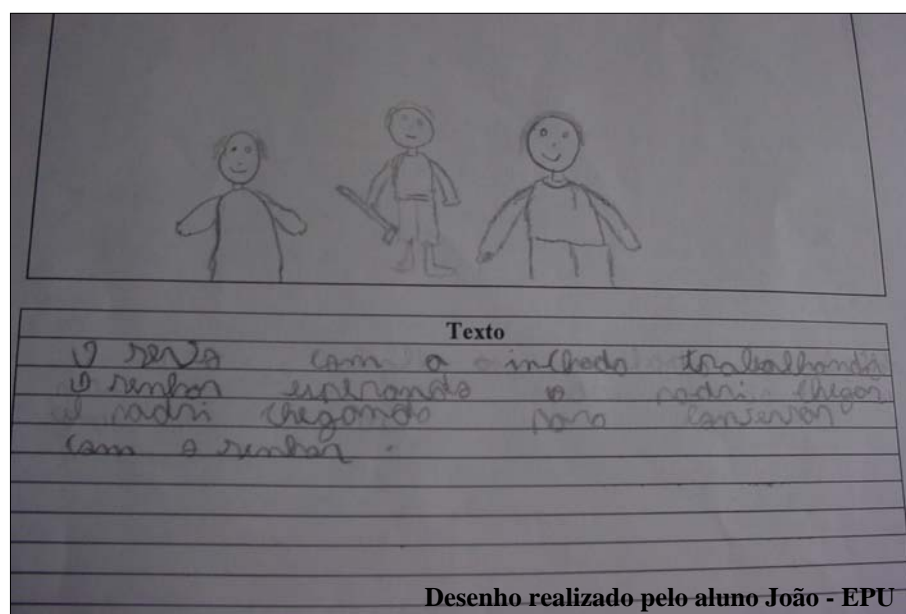 Texto
O servo com a inchada trabalhando
O senhor esperando o padri chegar
O padri chegando para conversar
com o senhor.
Desenho realizado pelo aluno João - EPU